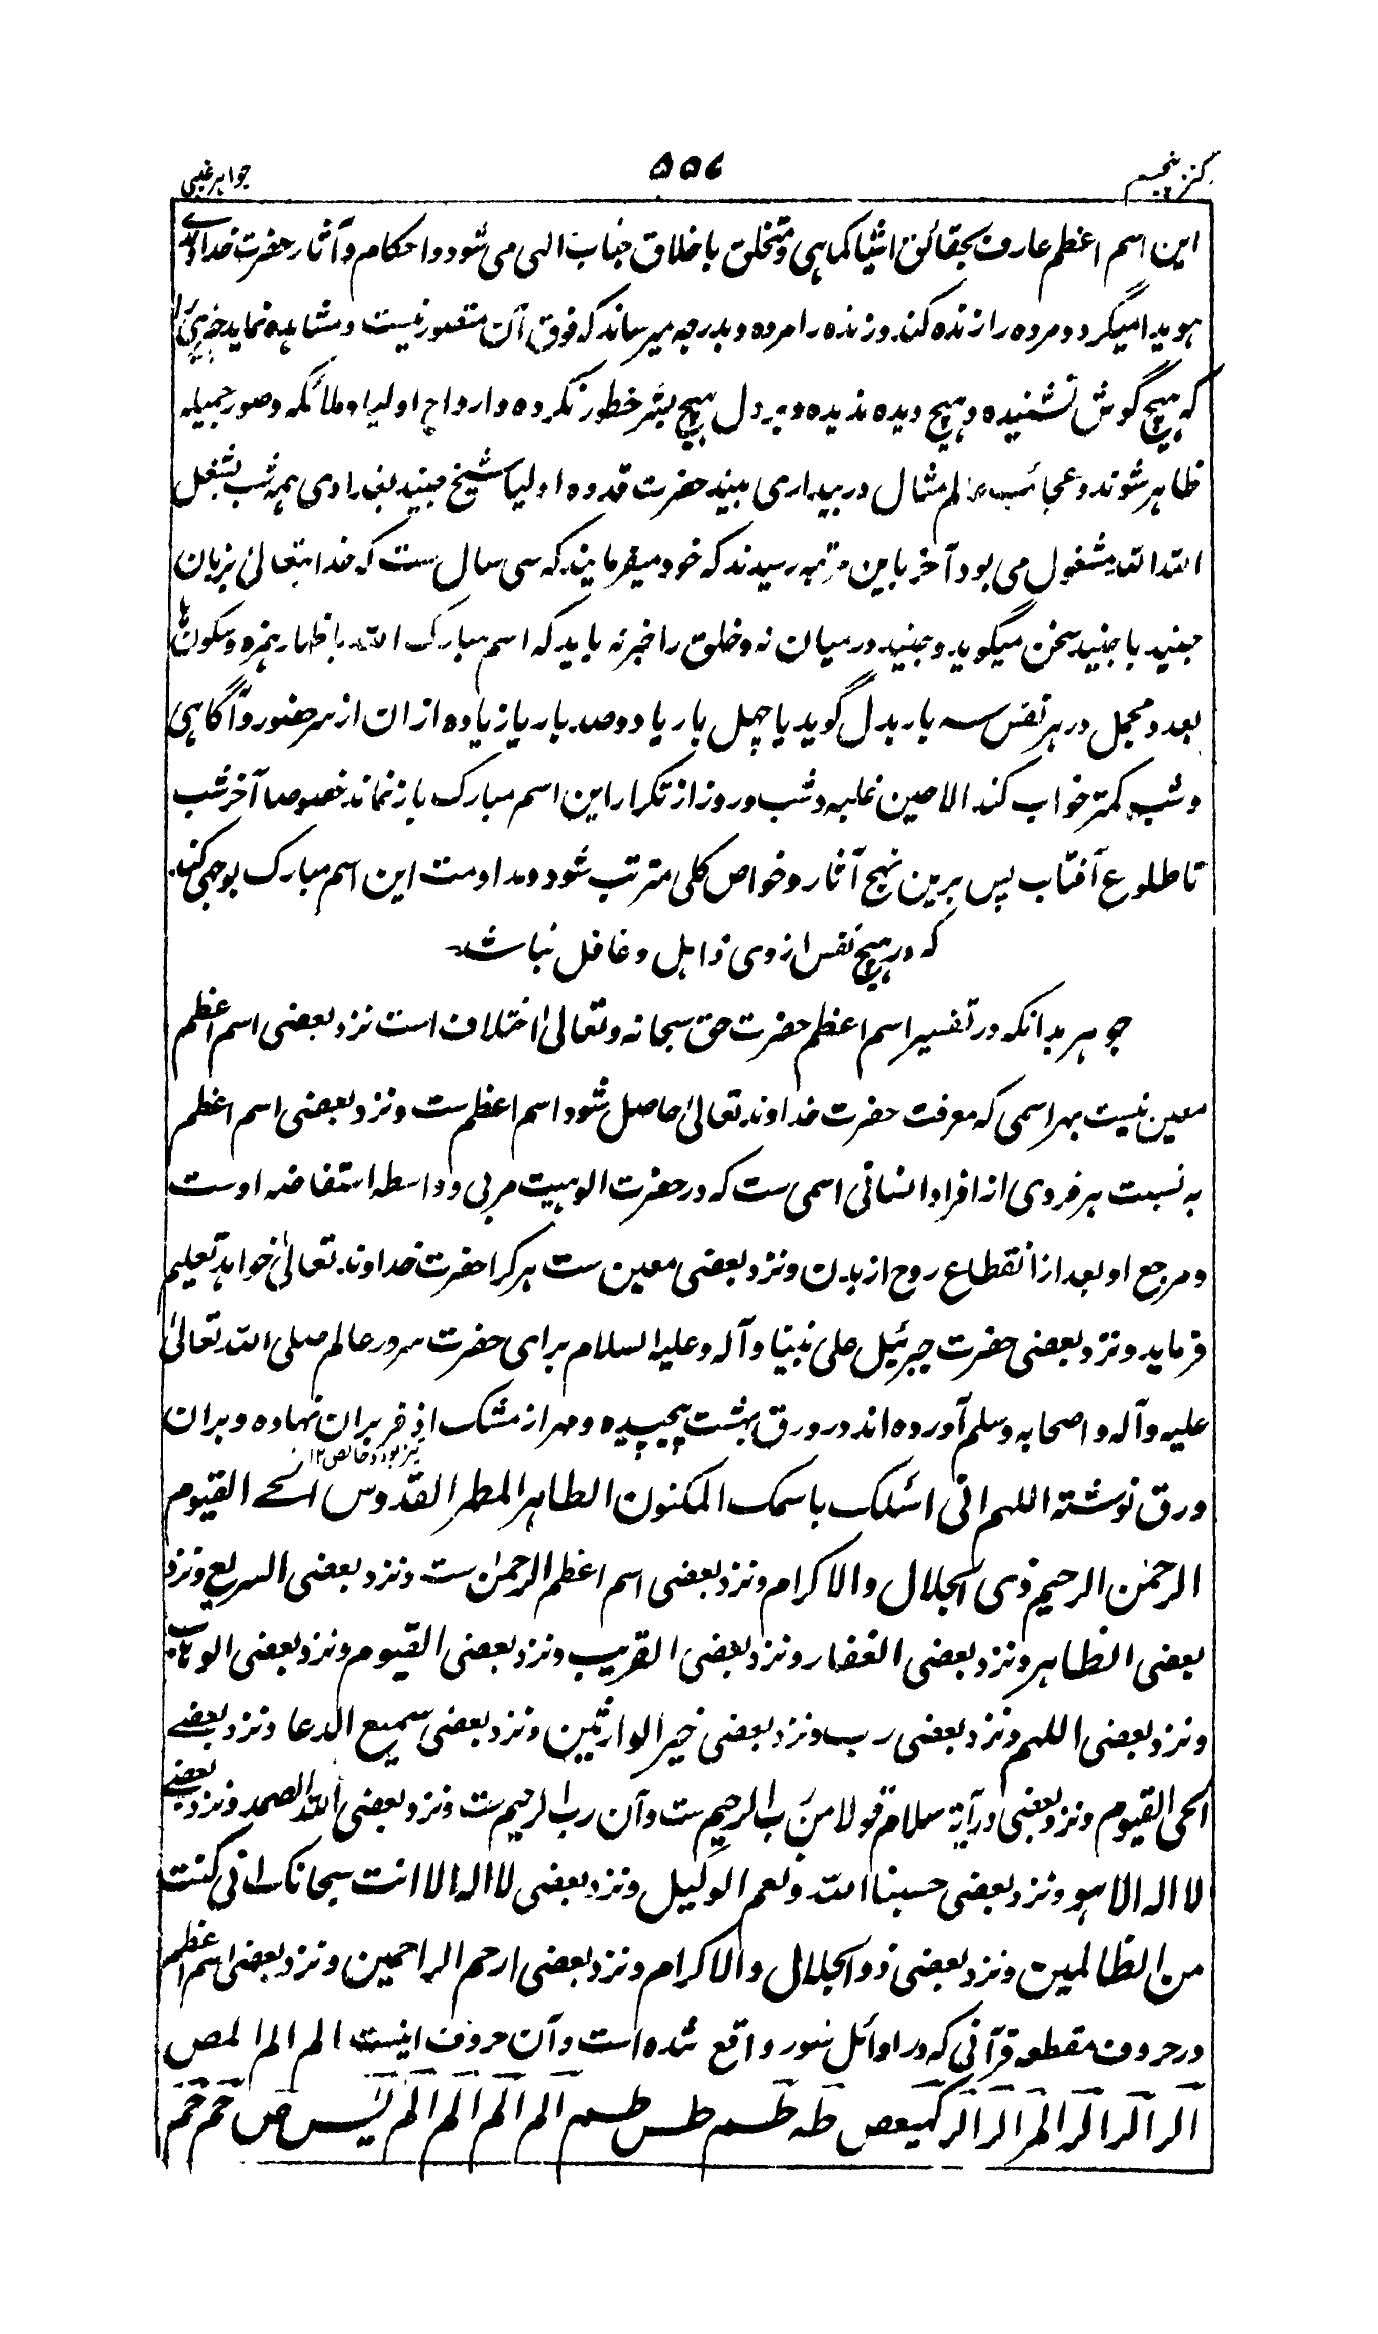 کنز پنجم
۵۵۶
جواهر غیبی
این اسم اعظم عارف بحقائق اشیا کماهی و متخلق باخلاق جناب الهی می شود و احکام و آثار حضرت خداوندی
هویدا میگردد و مرده را زنده کند و زنده را مرده و بدرجه میرساند که فوق آن متصور نیست و مشاهده نماید چیزی را
که هیچ گوش نشنیده و هیچ دیده ندیده و بر دل هیچ بشر خطور نکرده و ارواح اولیا و ملائکه و صور جمیله
ظاهر شوند و عجائب عالم مثال در بیداری بیند حضرت قدوه اولیا شیخ جنید بغدادی همه شب بشغل
الله الله مشغول می بود آخر باین مرتبه رسیدند که خود میفرمایند که سی سال ست که خدایتعالی بزبان
جنید با جنید سخن میگوید و جنید در میان نه و خلق را خبر نه باید که اسم مبارک الله باظهار همزه و سکون ها
بعد و مجمل در هر نفس سه بار بدل گوید یا چهل بار یا دو صد بار یا زیاده ازان از سر حضور و آگاهی
و شب کمتر خواب کند الا حین غلبه و شب و روز از تکرار این اسم مبارک باز نماند خصوصا آخر شب
تا طلوع آفتاب پس برین نهج آثار و خواص کلی مترتب شود و مداومت این اسم مبارک بوجهی کند
که در هیچ نفس از وی ذاهل و غافل نباشد
جوهر بدانکه در تفسیر اسم اعظم حضرت حق سبحانه و تعالیٰ اختلاف است نزد بعضی اسم اعظم
معین نیست بهر اسمی که معرفت حضرت خداوند تعالیٰ حاصل شود اسم اعظم ست و نزد بعضی اسم اعظم
به نسبت هر فردی از افراد انسانی اسمی ست که در حضرت الوهیت مربی و واسطه استفاضه اوست
و مرجع او بعد از انقطاع روح از بدن و نزد بعضی معین ست هر کرا حضرت خداوند تعالیٰ خواهد تعلیم
فرماید و نزد بعضی حضرت جبرئیل علی نبینا و آله و علیه السلام برای حضرت سرور عالم صلی الله تعالیٰ
علیه و آله و اصحابه و سلم آورده اند در ورق بهشت پیچیده و مهر از مشک اذفر بران نهاده و بران
تیز بو و خالص ۱۲
ورق نوشته اللهم انی اسئلک باسمک المکنون الطاهر المطهر القدوس الحی القیوم
الرحمٰن الرحیم ذی الجلال و الاکرام و نزد بعضی اسم اعظم الرحمٰن ست و نزد بعضی السریع و نزد
بعضی الظاهر و نزد بعضی الغفار و نزد بعضی القریب و نزد بعضی القیوم و نزد بعضی الوهاب
و نزد بعضی اللهم و نزد بعضی رب و نزد بعضی خیر الوارثین و نزد بعضی سمیع الدعا و نزد بعضے
الحی القیوم و نزد بعضی در آیة سلام قولا من رب الرحیم ست و آن رب الرحیم ست و نزد بعضی الله الصمد و نزد بعضے
لا اله الا هو و نزد بعضی حسبنا الله و نعم الوکیل و نزد بعضی لا اله الا انت سبحانک انی کنت
من الظالمین و نزد بعضی ذو الجلال و الاکرام و نزد بعضی ارحم الراحمین و نزد بعضی اسم اعظم
در حروف مقطعه قرآنی که در اوائل سور واقع شده است و آن حروف اینست الم الم المص
الر الر الر المر الر الر کهیعص طه طسم طس طسم الم الم الم الم یس ص حم حم